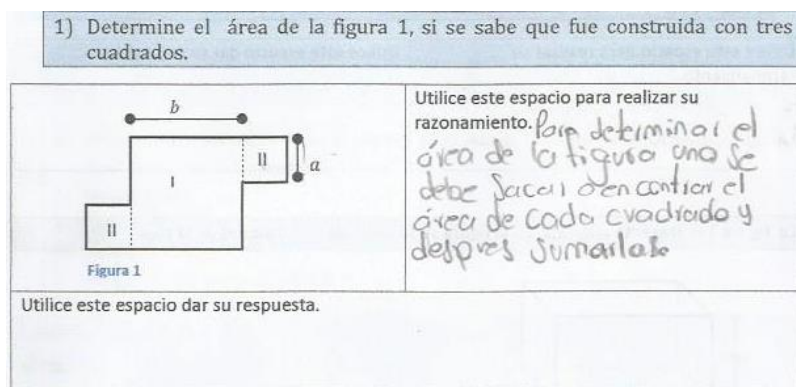 1) Determine el área de la figura 1, si se sabe que fue construida con tres
cuadrados.
b
II
a
I
II
Figura 1
Utilice este espacio para realizar su
razonamiento. Para determinar el
área de la figura uno se
debe sacar o encontrar el
área de cada cuadrado y
despues sumarlas
Utilice este espacio dar su respuesta.